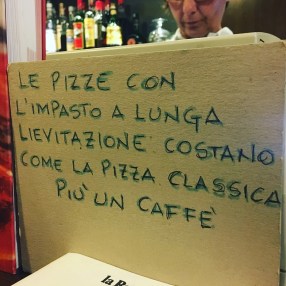 LE PIZZE CON
L'IMPASTO A LUNGA
LIEVITAZIONE COSTANO
COME LA PIZZA CLASSICA
PIÙ UN CAFFÈ
la